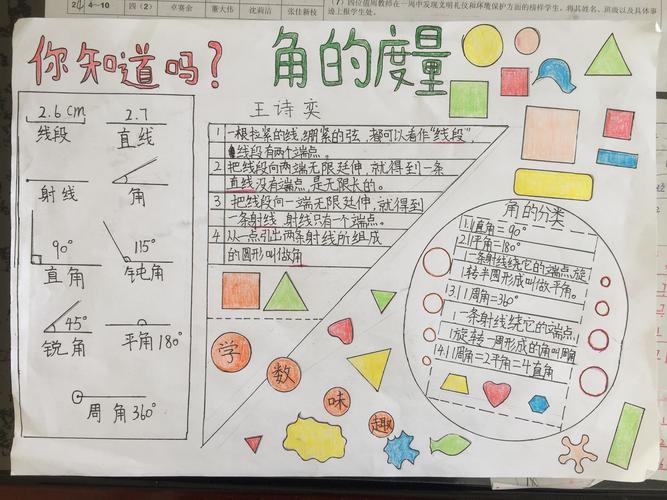 2 4-10 四(2) 卓赛金 董大伟 沈莉洁 张佳新枝
你知道吗?
角的度量
王诗奕
2.6cm 2.7
线段 直线
射线 角
90° 115°
直角 钝角
45°
锐角 平角180°
周角360°
1 一根拉紧的线,绷紧的弦,都可以看作"线段",
线段有两个端点。
2 把线段向两端无限延伸,就得到一条
直线没有端点,是无限长的。
3 把线段向一端无限延伸,就得到
一条射线 射线只有一个端点。
4 从一点引出两条射线所组成
的图形叫做角
角的分类
1.1直角=90°
2.1平角=180°
一条射线绕它的端点,旋
转半圆形成叫做平角。
13.11周角=360°
一条射线绕它的端点,
旋转一周形成的角叫周角
14.11周角=2平角=4直角
学
数
味
趣